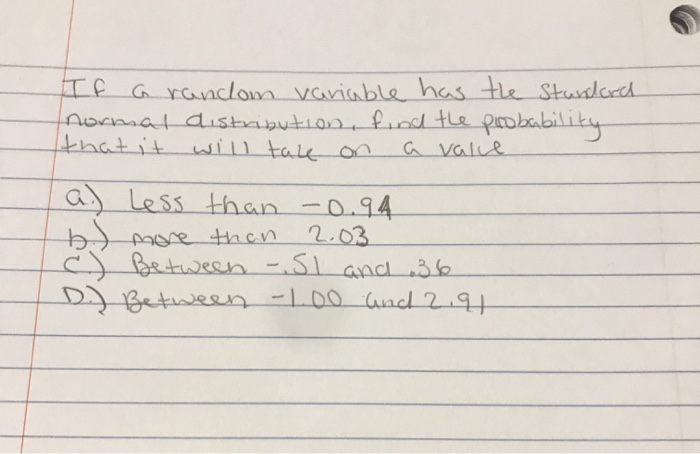 If a random variable has the standard
normal distribution, find the probability
that it will take on a value
a.) Less than -0.94
b.) more than 2.03
c.) Between -.51 and .36
D.) Between -1.00 and 2.91